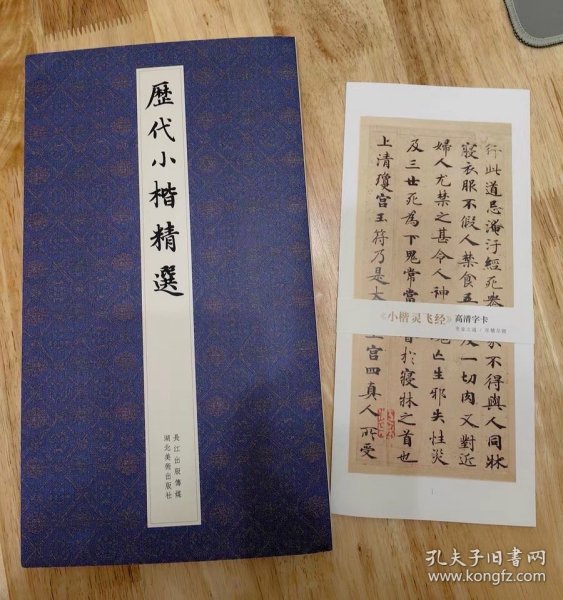 歷代小楷精選
長江出版傳媒
湖北美術出版社
行此道忌淹汙經死 不得與人同牀
寢衣服不假人禁食五 及一切肉又對近
婦人尤禁之甚令人神 亡生邪失性災
及三世死為下鬼常當 於寢牀之首也
上清瓊宮玉符乃是太 上宮四真人所受
《小楷灵飞经》高清字卡
孔夫子旧书网
www.kongfz.com